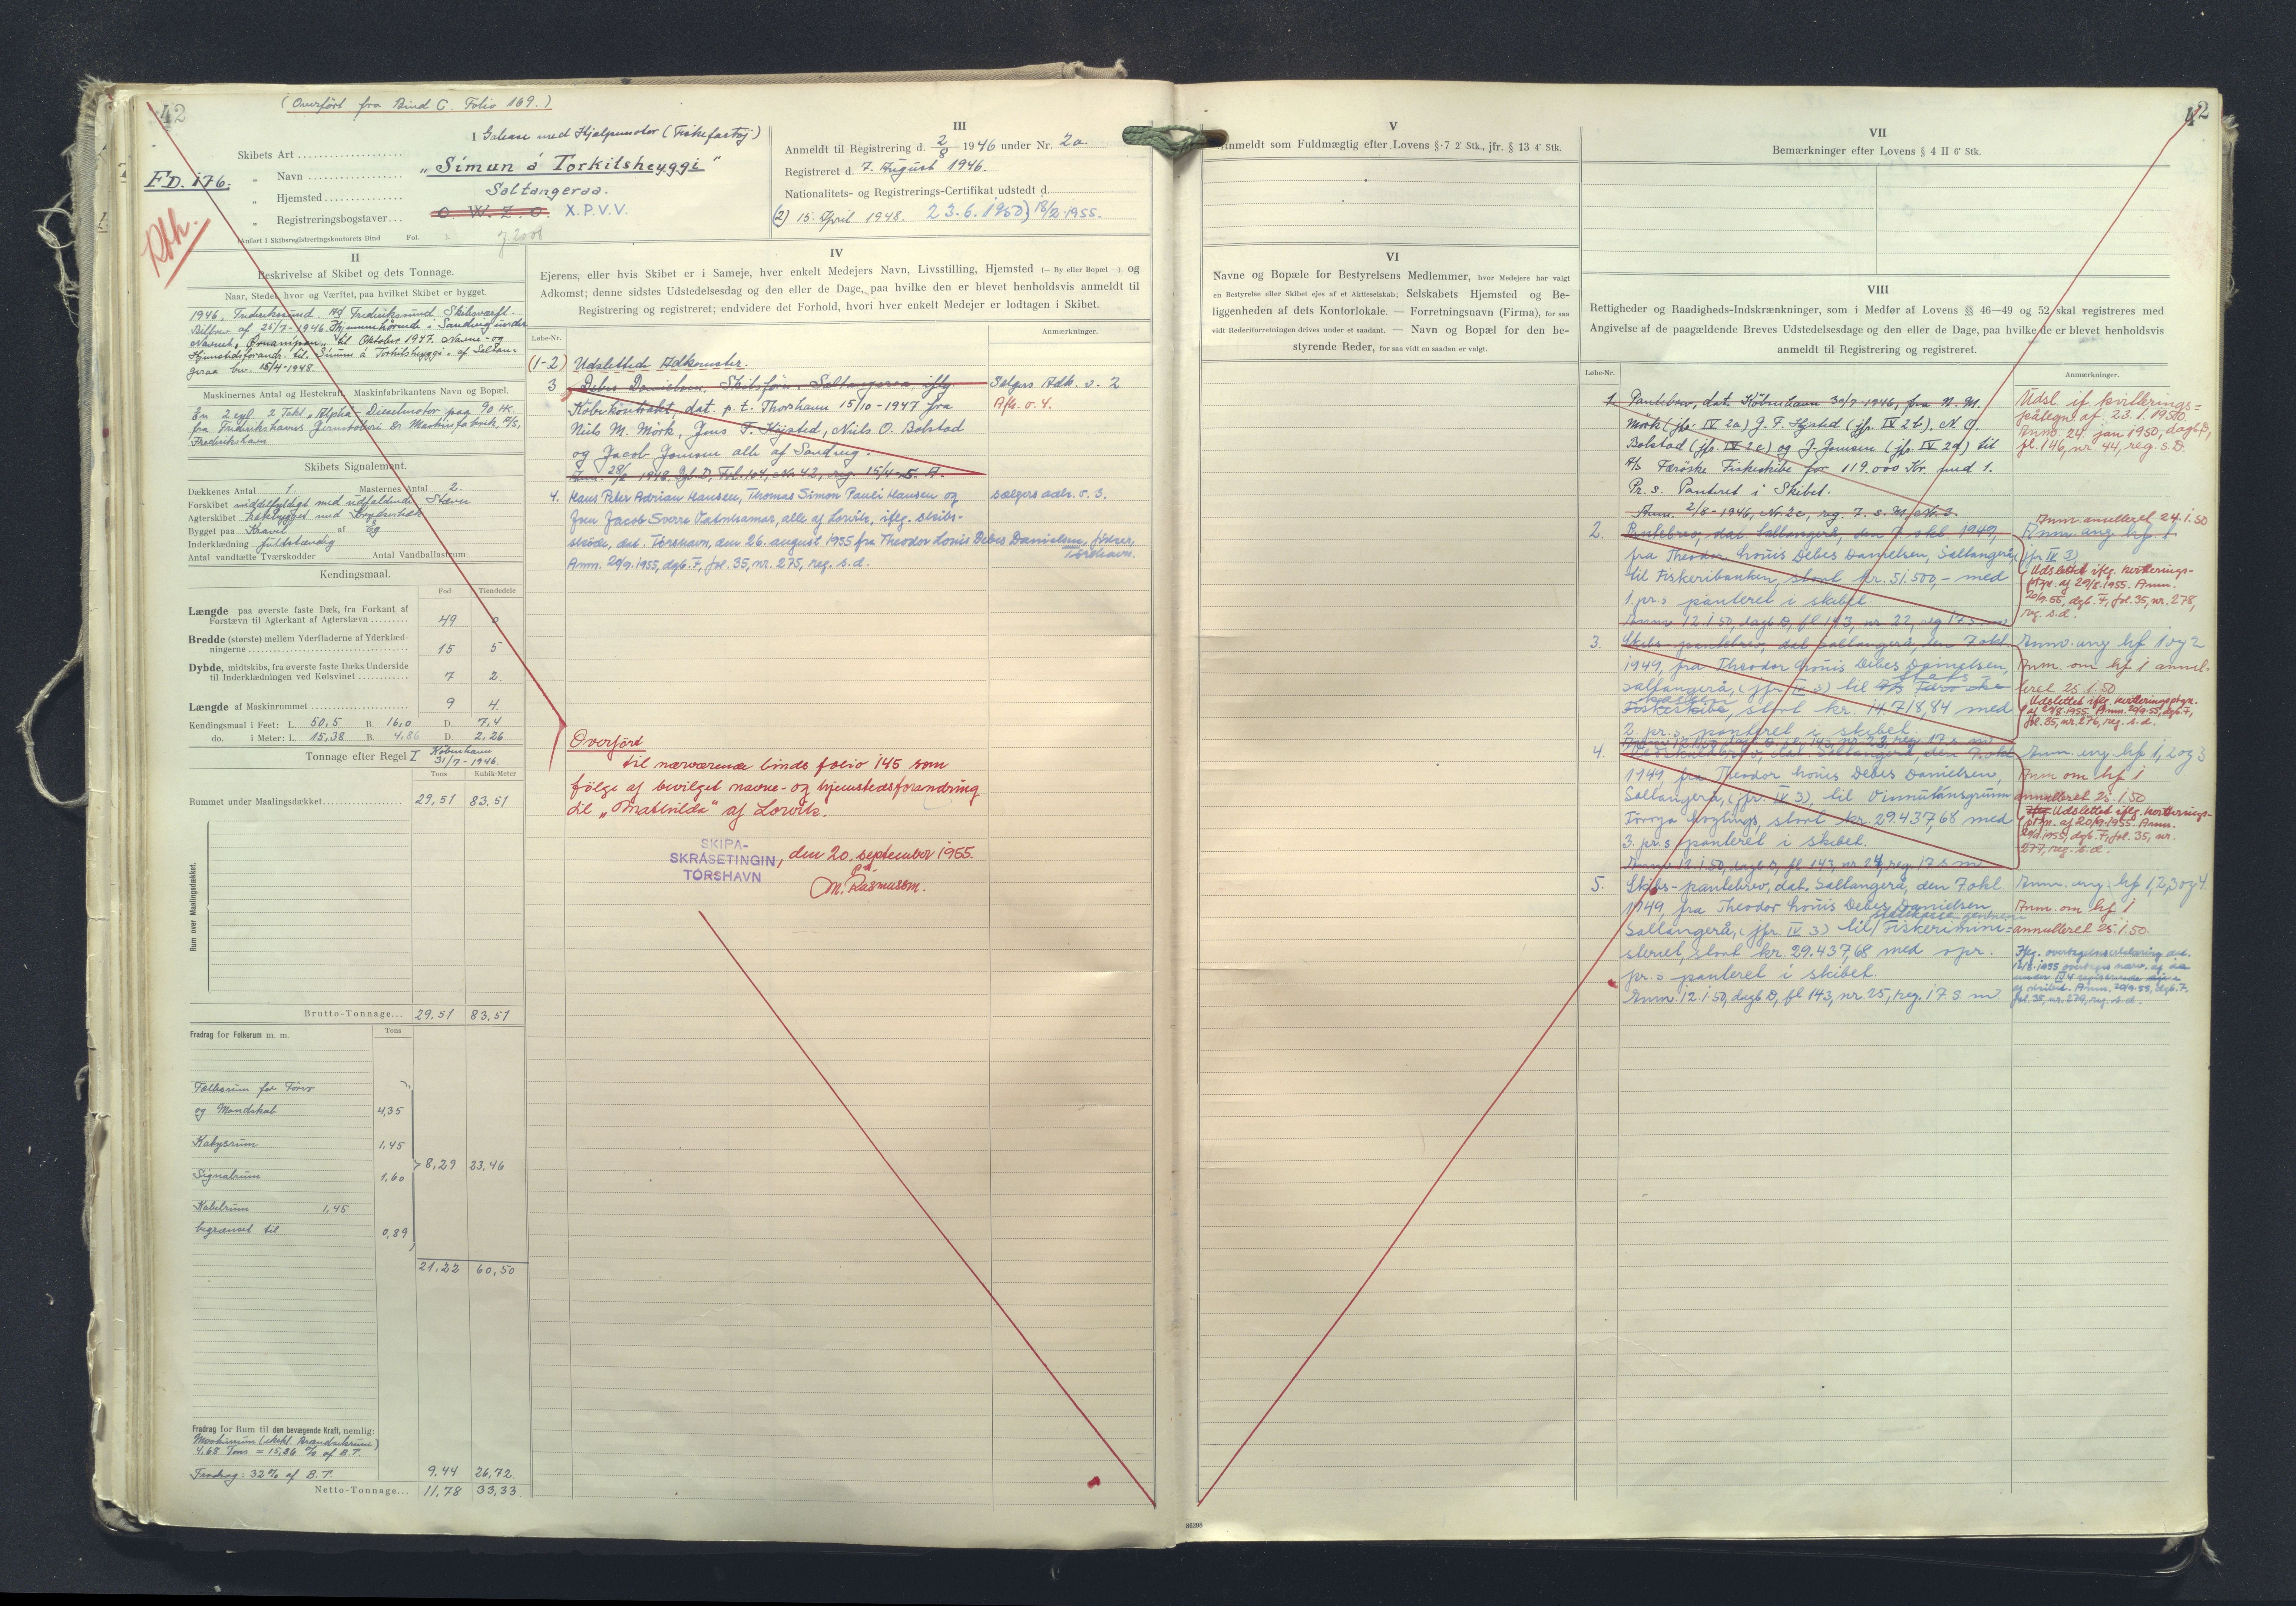 42
(Overført fra Bind C. Folio 169.)
FD. 176.
I
Galease med Hjælpemotor (Fiskefartøj)
Skibets Art
„ Navn
"Símun á Torkilsheyggi"
„ Hjemsted
Saltangeraa.
„ Registreringsbogstaver
O.W.Z.O. X.P.V.V.
Anført i Skibsregistreringskontorets Bind Fol.
II
Beskrivelse af Skibet og dets Tonnage.
Naar, Stedet, hvor og Værftet, paa hvilket Skibet er bygget.
1946, Frederikssund. A/S Frederikssund Skibsværft.
Bilbrev af 25/7-1946. Hjemmehörende i Sandvig under
Navnet til Oktober 1947. Navne- og
Hjemstedsforandr. til Símun á Torkilsheyggi af Saltan-
geraa bev. 15/4-1948.
Maskinernes Antal og Hestekraft, Maskinfabrikantens Navn og Bopæl.
En 2 cyl. 2 Takt „Alpha"-Dieselmotor paa 90 HK.
fra Frederikshavns Jernstøberi & Maskinfabrik, A/S,
Frederikshavn
Skibets Signalement.
Dækkenes Antal 1. Masternes Antal 2.
Forskibet middelfyldigt med udfaldende Stævn
Agterskibet hækbygget med Krydserhæk
Bygget paa Kravel af Eg
Inderklædning fuldstændig
Antal vandtætte Tværskodder Antal Vandballastrum
Kendingsmaal.
Fod Tiendedele
Længde paa øverste faste Dæk, fra Forkant af
Forstævn til Agterkant af Agterstævn 49 0
Bredde (største) mellem Yderfladerne af Yderklæd-
ningerne 15 5
Dybde, midtskibs, fra øverste faste Dæks Underside
til Inderklædningen ved Kølsvinet 7 2.
Længde af Maskinrummet 9 4.
Kendingsmaal i Feet: L. 50,5 B. 16,0 D. 7,4
do. i Meter: L. 15,38 B. 4,86 D. 2,26
Tonnage efter Regel I København
31/7-1946.
Tons Kubik-Meter
Rummet under Maalingsdækket 29,51 83,51
Rum over Maalingsdækket.
Brutto-Tonnage... 29,51 83,51
Fradrag for Folkerum m. m. Tons
Folkerum for Fører
og Mandskab 4,35
Kabysrum 1,45
8,29 23,46
Signalrum 1,60
Kabelrum 1,45
begrænset til 0,89
21,22 60,50
Fradrag for Rum til den bevægende Kraft, nemlig:
Maskinrum (ekskl. Brændselsrum)
4,68 Tons = 15,86 % af B.T.
Fradrag: 32% af B.T. 9,44 26,72.
Netto-Tonnage... 11,78 33,33
III
Anmeldt til Registrering d. 2/8 1946 under Nr. 2a.
Registreret d. 7. August 1946.
Nationalitets- og Registrerings-Certifikat udstedt d.
(2) 15. April 1948. 23.6.1950) 18/2.1955.
IV
Ejerens, eller hvis Skibet er i Sameje, hver enkelt Medejers Navn, Livsstilling, Hjemsted (— By eller Bopæl —) og
Adkomst; denne sidstes Udstedelsesdag og den eller de Dage, paa hvilke den er blevet henholdsvis anmeldt til
Registrering og registreret; endvidere det Forhold, hvori hver enkelt Medejer er lodtagen i Skibet.
Løbe-Nr. Anmærkninger.
(1-2) Udslettede Adkomster.
3 Debes Danielsen, Skibsfører, Saltangeraa, iflg. Sælgers Adk. v. 2
Købekontrakt, dat. p.t. Thorshavn 15/10-1947 fra Afh. v. 4.
Niels M. Mörk, Jens F. Højsted, Niels O. Bolstad
og Jacob Joensen alle af Sandvig.
Anm. 28/2 1948, Dgb. D, Fol. 104, Nr. 43, reg. 15/4 s. A.
4. Hans Peter Adrian Hansen, Thomas Simon Pauli Hansen og sælgers adk. v. 3.
Jens Jacob Sverre Vatnhamar, alle af Lorvik, iflg. skibs-
skøde, dat. Tórshavn, den 26. august 1955 fra Theodor Louis Debes Danielsen, fisker,
Tórshavn.
Anm. 20/9.1955, dgb. F, fol. 35, nr. 275, reg. s.d.
Overført
til nærværende binds folio 145 som
følge af bevilget navne- og hjemstedsforandring
til „Mathilda" af Lorvik.
SKIPA-
SKRÁSETINGIN, den 20. september 1955.
TÓRSHAVN
M. Rasmussen.
42
V
Anmeldt som Fuldmægtig efter Lovens § 7 2' Stk., jfr. § 13 4' Stk.
VI
Navne og Bopæle for Bestyrelsens Medlemmer, hvor Medejere har valgt
en Bestyrelse eller Skibet ejes af et Aktieselskab; Selskabets Hjemsted og Be-
liggenheden af dets Kontorlokale. — Forretningsnavn (Firma), for saa
vidt Rederiforretningen drives under et saadant. — Navn og Bopæl for den be-
styrende Reder, for saa vidt en saadan er valgt.
VII
Bemærkninger efter Lovens § 4 II 6' Stk.
VIII
Rettigheder og Raadigheds-Indskrænkninger, som i Medfør af Lovens §§ 46—49 og 52 skal registreres med
Angivelse af de paagældende Breves Udstedelsesdage og den eller de Dage, paa hvilke de er blevet henholdsvis
anmeldt til Registrering og registreret.
Løbe-Nr. Anmærkninger.
1. Pantebrev, dat. København 30/7-1946, fra N. M.
Mörk (jfr. IV 2a) J. F. Højsted (jfr. IV 2b), N. O.
Bolstad (jfr. IV 2c) og J. Joensen (jfr. IV 2d) til
A/S Færöske Fiskeskibe for 119.000 Kr. med 1.
Pr. s. Panteret i Skibet.
Anm. 2/8-1946, Nr. 2c, reg. 7. s. M., Nr. 3.
Udsl. if. kvitterings=
påtegn. af 23.1.1950.
Anm. 24. jan 1950, dagb. D,
fl. 146, nr. 44, reg. s. D.
2. Pantebrev, dat. Saltangerå, den 7 okt 1949,
fra Theodor Louis Debes Danielsen, Saltangerå, (jfr IV 3)
til Fiskeribanken, stort kr. 51.500,- med
1. pr. s panteret i skibet
Anm. 12.1.50, dagb. D, fl 143, nr 22, reg 17 s m
Anm. annulleret 24.1.50
Anm. ang. hf. 1.
Udslettet iflg. kvitterings-
ptgn. af 29/8.1955. Anm.
20/9.55, dgb. F, fol. 35, nr. 278,
reg. s.d.
3. Skibs-pantebrev, dat Saltangerå, den 7 okt.
1949, fra Theodor Louis Debes Danielsen,
Saltangerå, (jfr IV 3) til A/S Færöske
Fiskeskibe, stort kr. 14.718,84 med
2 pr. s. panteret i skibet.
Anm. 12.1.50, dagb. D, fl 143, nr 23, reg. 17 s m
Anm. ang hf 1 og 2
Anm. om hf 1 annul-
leret 25.1.50
Udslettet iflg. kvitteringsptgn.
af 29/8.1955. Anm. 20/9.55, dgb. F,
fol. 35, nr. 276, reg. s.d.
4. Skibs-pantebrev, dat. Saltangerå, den 7 okt
1949 fra Theodor Louis Debes Danielsen,
Saltangerå, (jfr. IV 3), til Vinnutánsgrunn
Føroya Løgtings, stort kr. 29.437,68 med
3. pr. s panteret i skibet.
Anm. 12.1.50, dagb. D, fl 143, nr 24, reg. 17 s m
Anm. ang hf 1, 2 og 3
Anm om hf 1
annulleret 25.1.50
Udslettet iflg. kvitterings-
ptgn. af 20/9.1955. Anm.
20/9.1955, dgb. F, fol. 35, nr.
277, reg. s.d.
5. Skibs-pantebrev, dat. Saltangerå, den 7 okt.
1949, fra Theodor Louis Debes Danielsen
Saltangerå, (jfr. IV 3) til Fiskerimini=
steriet, stort kr. 29.437,68 med opr.
pr. s panteret i skibet.
Anm. 12.1.50, dagb D, fl 143, nr. 25, reg. 17. s. m
Anm. ang. hf 1, 2, 3 og 4.
Anm. om hf 1
annulleret 25.1.50.
Iflg. overtagelseserklæring dat.
af skibet. Anm. 20/9.55, dgb. F,
fol. 35, nr. 279, reg. s.d.
86398